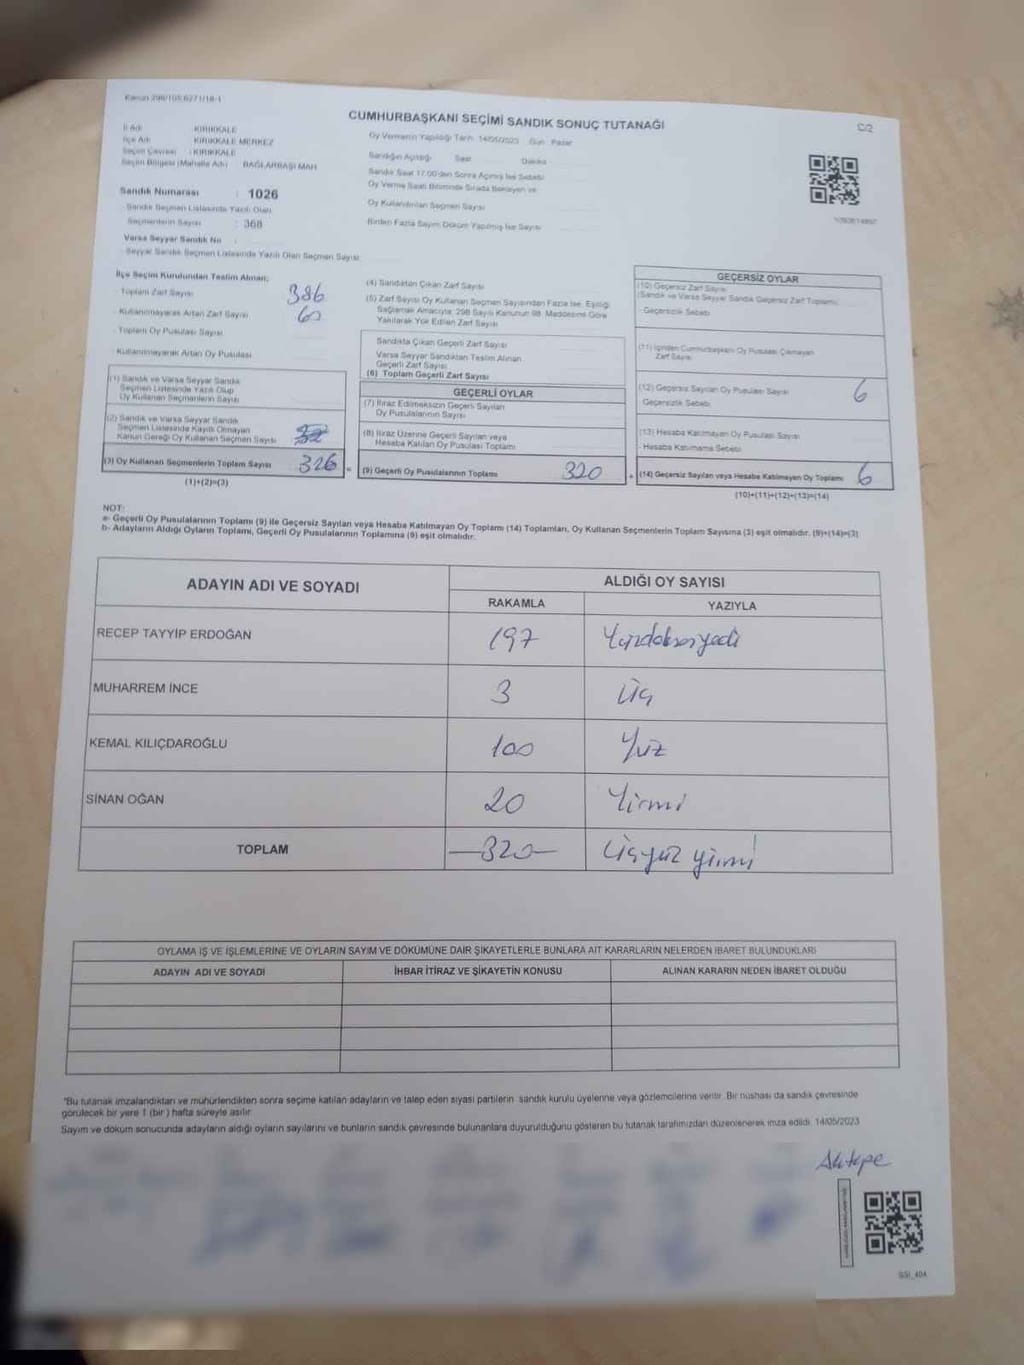 Kanun 298/105,6271/18-1
CUMHURBAŞKANI SEÇİMİ SANDIK SONUÇ TUTANAĞI
C/2
İl Adı KIRIKKALE
İlçe Adı KIRIKKALE MERKEZ
Seçim Çevresi : KIRIKKALE
Seçim Bölgesi (Mahalle Adı) BAĞLARBAŞI MAH.
Sandık Numarası : 1026
Sandık Seçmen Listesinde Yazılı Olan
Seçmenlerin Sayısı : 368
Varsa Seyyar Sandık No :
Seyyar Sandık Seçmen Listesinde Yazılı Olan Seçmen Sayısı:
Oy Vermenin Yapıldığı Tarih: 14/05/2023 Gün : Pazar
Sandığın Açıldığı Saat Dakika
Sandık Saat 17.00'den Sonra Açılmış İse Sebebi
Oy Verme Saati Bitiminde Sırada Bekleyen ve
Oy Kullandırılan Seçmen Sayısı
Birden Fazla Sayım Döküm Yapılmış İse Sayısı
İlçe Seçim Kurulundan Teslim Alınan;
Toplam Zarf Sayısı 386
Kullanılmayarak Artan Zarf Sayısı 60
Toplam Oy Pusulası Sayısı
Kullanılmayarak Artan Oy Pusulası
(1) Sandık ve Varsa Seyyar Sandık
Seçmen Listesinde Yazılı Olup
Oy Kullanan Seçmenlerin Sayısı
(2) Sandık ve Varsa Seyyar Sandık
Seçmen Listesinde Kayıtlı Olmayan
Kanun Gereği Oy Kullanan Seçmen Sayısı
(3) Oy Kullanan Seçmenlerin Toplam Sayısı 326
(1)+(2)=(3)
(4) Sandıktan Çıkan Zarf Sayısı
(5) Zarf Sayısı Oy Kullanan Seçmen Sayısından Fazla İse, Eşitliği
Sağlamak Amacıyla; 298 Sayılı Kanunun 98. Maddesine Göre
Yakılarak Yok Edilen Zarf Sayısı
Sandıkta Çıkan Geçerli Zarf Sayısı
Varsa Seyyar Sandıktan Teslim Alınan
Geçerli Zarf Sayısı
(6) Toplam Geçerli Zarf Sayısı
GEÇERLİ OYLAR
(7) İtiraz Edilmeksizin Geçerli Sayılan
Oy Pusulalarının Sayısı
(8) İtiraz Üzerine Geçerli Sayılan veya
Hesaba Katılan Oy Pusulası Toplamı
= (9) Geçerli Oy Pusulalarının Toplamı 320
GEÇERSİZ OYLAR
(10) Geçersiz Zarf Sayısı
(Sandık ve Varsa Seyyar Sandık Geçersiz Zarf Toplamı)
Geçersizlik Sebebi
(11) İçinden Cumhurbaşkanı Oy Pusulası Çıkmayan
Zarf Sayısı
(12) Geçersiz Sayılan Oy Pusulası Sayısı 6
Geçersizlik Sebebi
(13) Hesaba Katılmayan Oy Pusulası Sayısı
Hesaba Katılmama Sebebi
+ (14) Geçersiz Sayılan veya Hesaba Katılmayan Oy Toplamı 6
(10)+(11)+(12)+(13)=(14)
NOT:
a- Geçerli Oy Pusulalarının Toplamı (9) ile Geçersiz Sayılan veya Hesaba Katılmayan Oy Toplamı (14) Toplamları, Oy Kullanan Seçmenlerin Toplam Sayısına (3) eşit olmalıdır. (9)+(14)=(3)
b- Adayların Aldığı Oyların Toplamı, Geçerli Oy Pusulalarının Toplamına (9) eşit olmalıdır.
ADAYIN ADI VE SOYADI ALDIĞI OY SAYISI
RAKAMLA YAZIYLA
RECEP TAYYİP ERDOĞAN 197 Yüzdoksanyedi
MUHARREM İNCE 3 Üç
KEMAL KILIÇDAROĞLU 100 Yüz
SİNAN OĞAN 20 Yirmi
TOPLAM —320— Üçyüz yirmi
OYLAMA İŞ VE İŞLEMLERİNE VE OYLARIN SAYIM VE DÖKÜMÜNE DAİR ŞİKAYETLERLE BUNLARA AİT KARARLARIN NELERDEN İBARET BULUNDUKLARI
ADAYIN ADI VE SOYADI İHBAR İTİRAZ VE ŞİKAYETİN KONUSU ALINAN KARARIN NEDEN İBARET OLDUĞU
"Bu tutanak imzalandıktan ve mühürlendikten sonra seçime katılan adayların ve talep eden siyasi partilerin sandık kurulu üyelerine veya gözlemcilerine verilir. Bir nüshası da sandık çevresinde
görülecek bir yere 1 (bir ) hafta süreyle asılır.
Sayım ve döküm sonucunda adayların aldığı oyların sayılarını ve bunların sandık çevresinde bulunanlara duyurulduğunu gösteren bu tutanak tarafımızdan düzenlenerek imza edildi. 14/05/2023